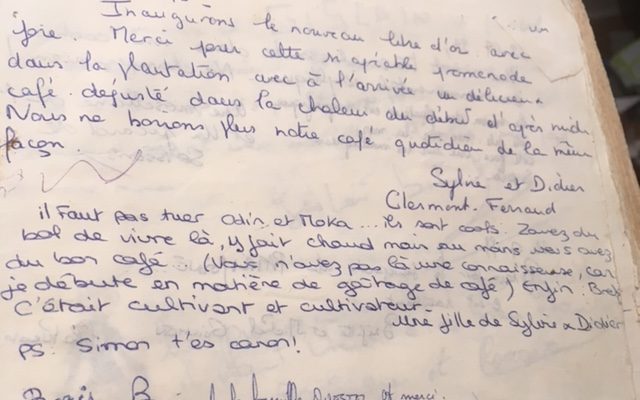 Inaugurons le nouveau livre d'or avec
joie. Merci pour cette si agréable promenade
dans la plantation avec à l'arrivée un délicieux
café dégusté dans la chaleur du début d'après midi
Nous ne boirons plus notre café quotidien de la même
façon.
Sylvie et Didier
Clermont-Ferrand
il faut pas tuer Odin et Moka... ils sont cools. Zavez du
bol de vivre là, y fait chaud mais au moins vous avez
du bon café. (Vous n'avez pas là une connaisseuse, car
je débute en matière de goûtage de café) Enfin. Bref
C'était cultivant et cultivateur.
Une fille de Sylvie & Didier
PS. Simon t'es canon!
et merci.